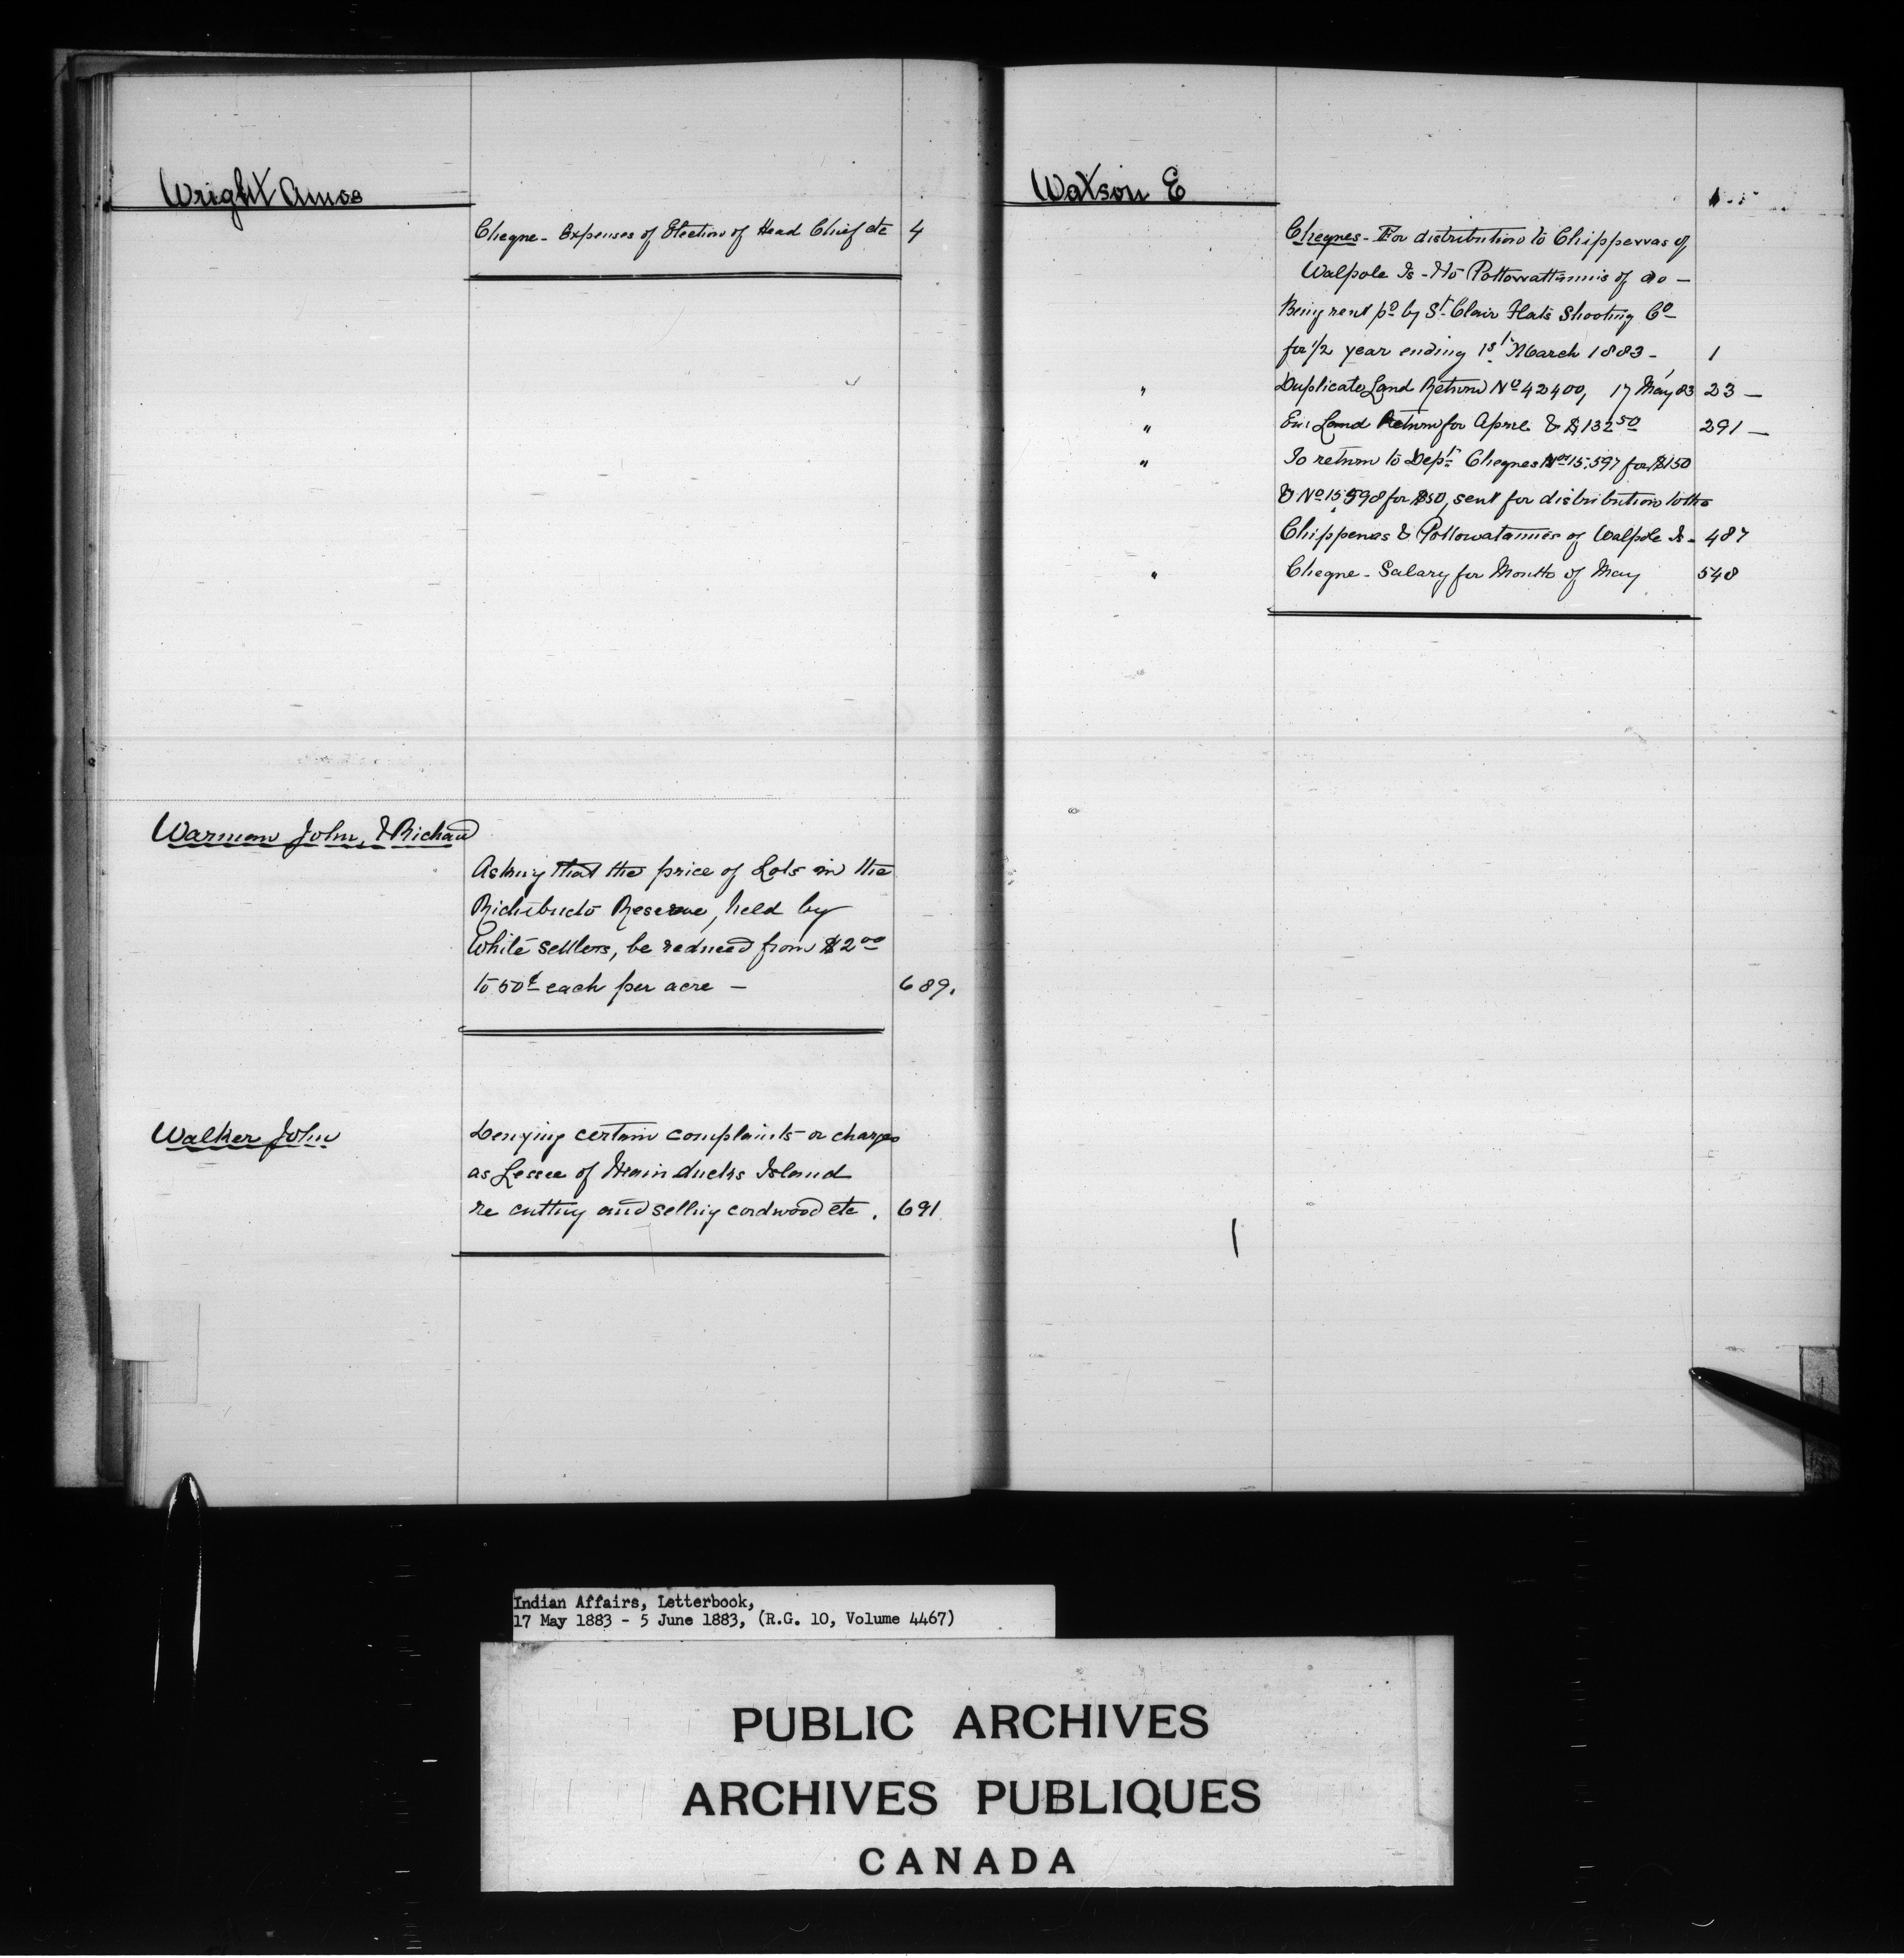 Wright Amos
Cheque - Expenses of Election of Head Chief etc 4
Warman John, & Richard
Asking that the price of Lots in the
Richibucto Reserve, held by
White settlers, be reduced from $2.00
to 50¢ each per acre - 689.
Walker John
Denying certain complaints or charges
as Lessee of Main ducks Island
re cutting and selling cordwood etc. 691
Watson E
Cheques - For distribution to Chippewas of
Walpole Is - Pottowattamis of do -
Being rent pd by St Clair Flats Shooting Co
for 1/2 year ending 1st March 1883 - 1
" Duplicate Land Return No 42400, 17 May 83 23 -
" Land Return for April & $132.50 291 -
" To return to Dept. Cheques Nos 15.597 for $150
& No 15.598 for $50, sent for distribution to the
Chippewas & Pottowatamies of Walpole Is - 487
" Cheque - Salary for Month of May 548
Indian Affairs, Letterbook,
17 May 1883 - 5 June 1883, (R.G. 10, Volume 4467)
PUBLIC ARCHIVES
ARCHIVES PUBLIQUES
CANADA